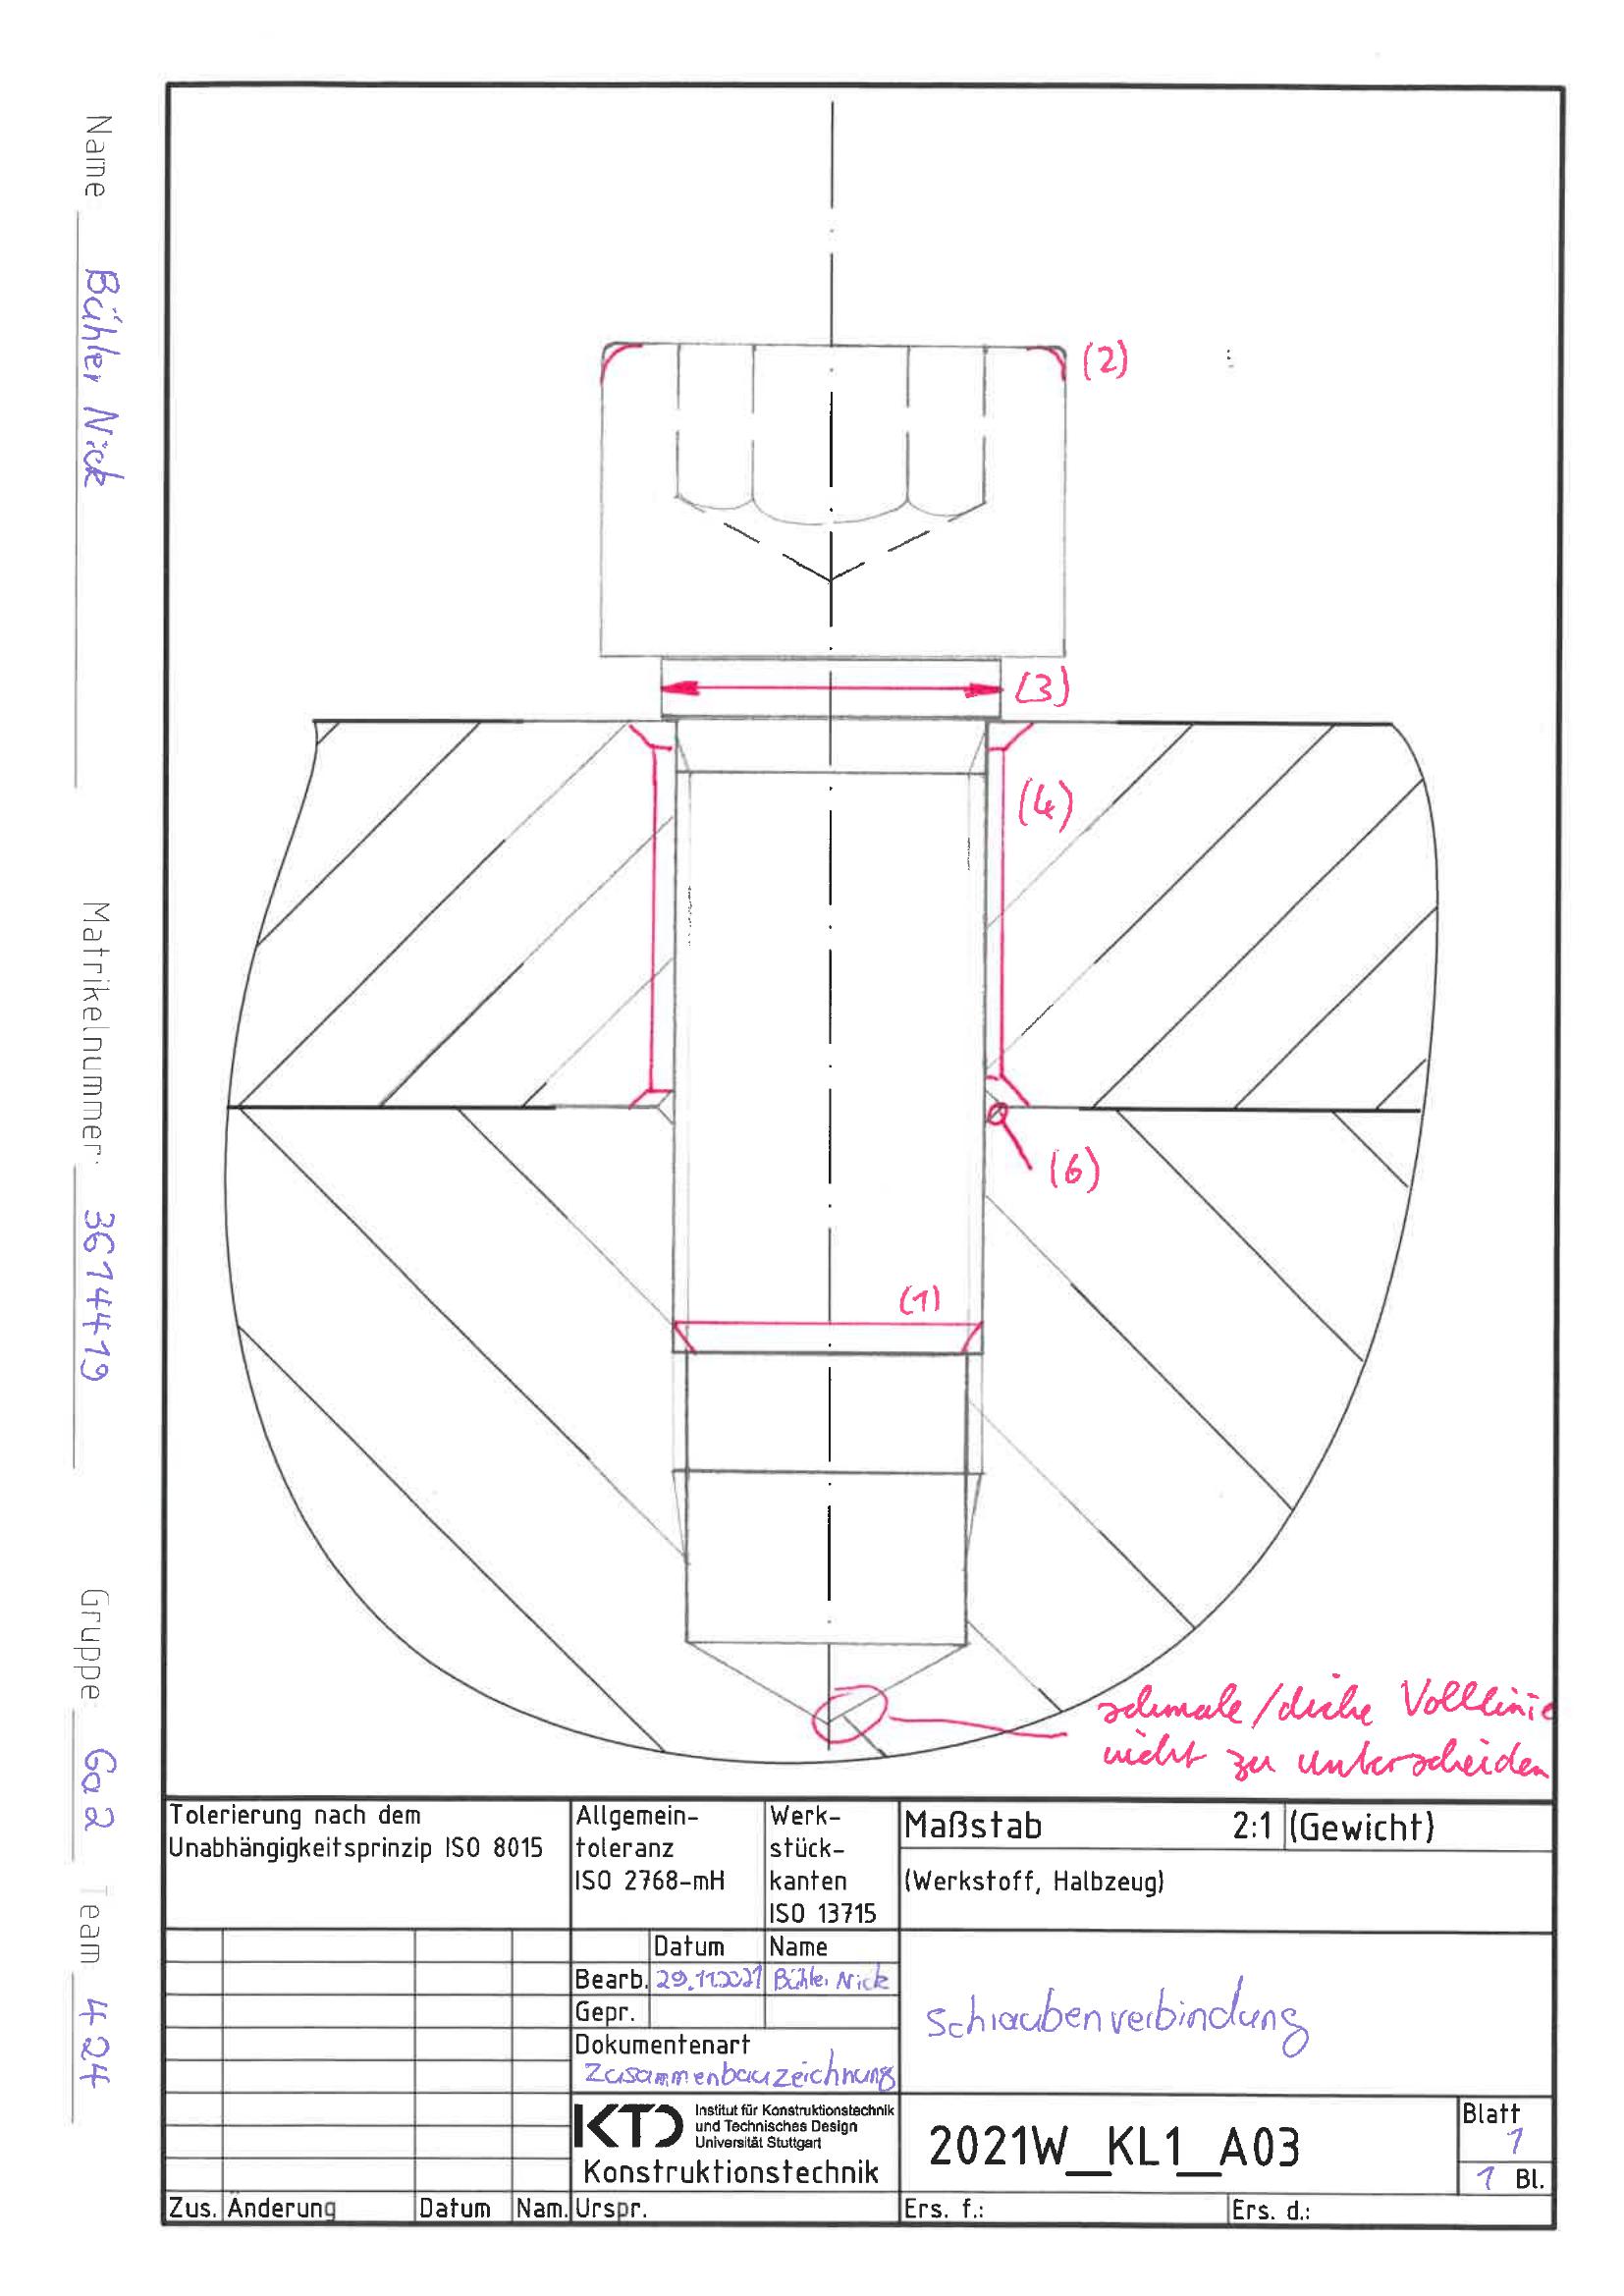 Name Bühler Nick
Matrikelnummer: 3614419
Gruppe Ga2 Team 424
(2)
(3)
(4)
(6)
(1)
schmale/dicke Volllinie
nicht zu unterscheiden
Tolerierung nach dem
Unabhängigkeitsprinzip ISO 8015
Allgemein-
toleranz
ISO 2768-mH
Werk-
stück-
kanten
ISO 13715
Maßstab 2:1 (Gewicht)
(Werkstoff, Halbzeug)
Datum Name
Bearb. 29.11.2021 Bühler Nick
Gepr.
Dokumentenart
Zusammenbauzeichnung
Schraubenverbindung
KTD Institut für Konstruktionstechnik
und Technisches Design
Universität Stuttgart
Konstruktionstechnik
2021W_KL1_A03
Blatt
1
1 Bl.
Zus. Änderung Datum Nam. Urspr. Ers. f.: Ers. d.: